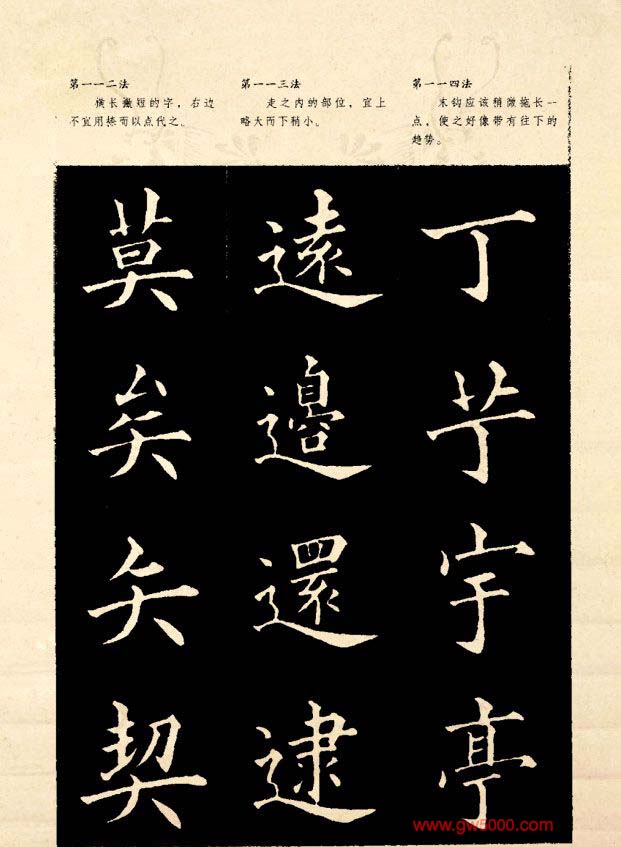 第一一二法
横长撇短的字，右边
不宜用捺而以点代之。
第一一三法
走之内的部位，宜上
略大而下稍小。
第一一四法
末钩应该稍微拖长一
点，使之好像带有往下的
趋势。
莫
矣
矢
契
遠
邊
還
逮
丁
艼
宇
亭
www.gw5000.com